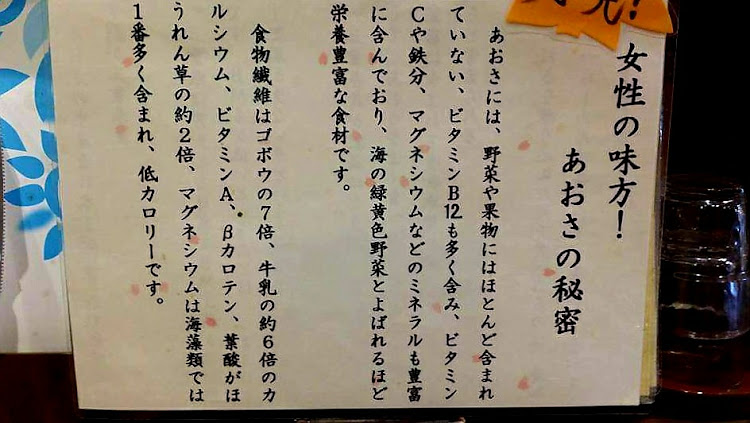 女性の味方！
あおさの秘密
あおさには、野菜や果物にはほとんど含まれ
ていない、ビタミンB12も多く含み、ビタミン
Cや鉄分、マグネシウムなどのミネラルも豊富
に含んでおり、海の緑黄色野菜とよばれるほど
栄養豊富な食材です。
食物繊維はゴボウの7倍、牛乳の約6倍のカ
ルシウム、ビタミンA、βカロテン、葉酸がほ
うれん草の約2倍、マグネシウムは海藻類では
1番多く含まれ、低カロリーです。